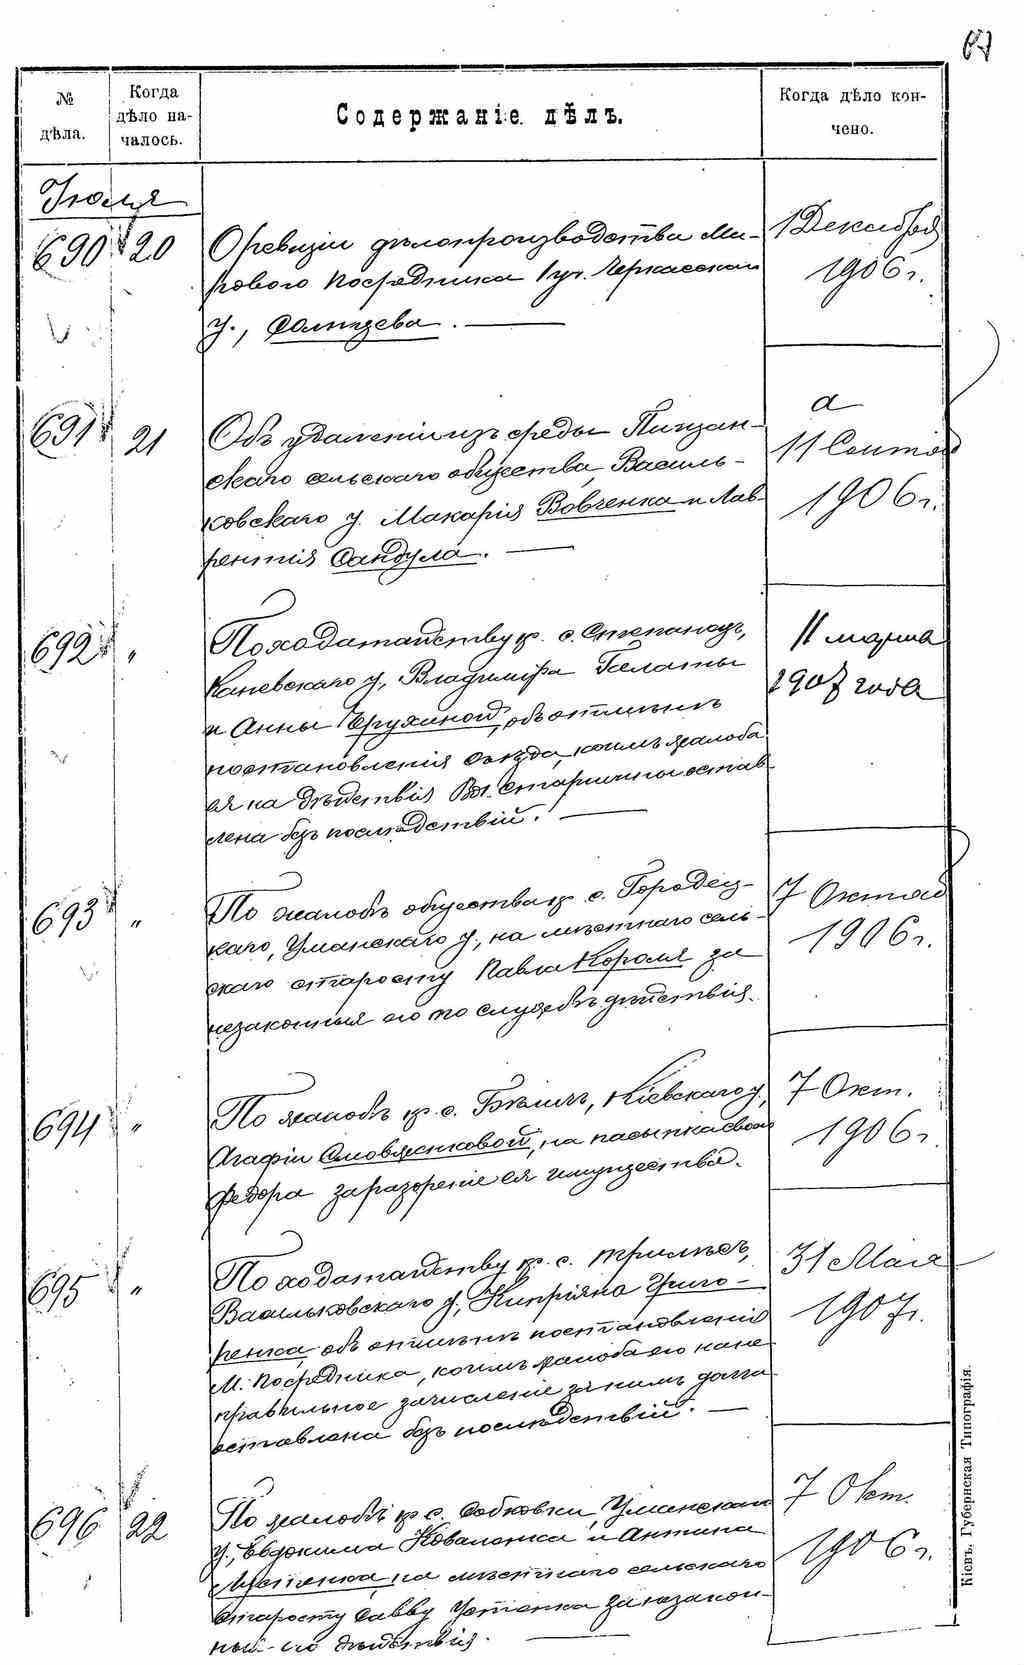 67
№ дѣла.
Когда дѣло на-
чалось.
Содержаніе дѣлъ.
Когда дѣло кон-
чено.
Іюля
690 20
О ревизіи дѣлопроизводства Ми-
рового Посредника 1 уч. Черкасскаго
у., Солнцева.
1 Декабря
1906 г.
691 21
Объ удаленіи изъ среды
скаго сельскаго общества, Василь-
ковскаго у. Макарія Вовченка и Лав-
рентія Сандула.
а
11 Сентяб
1906 г.
692 "
По ходатайству кр. с. Степанецъ,
Каневскаго у., Владиміра Галаты
и Анны, объ отмѣнѣ
постановленія Съѣзда, коимъ жалоба
ея на дѣйствія Вол. старшины остав-
лена безъ послѣдствій.
11 марта
1907 года
693 "
По жалобѣ общества кр. с. Городец-
каго, Уманскаго у., на мѣстнаго сель-
скаго старосту Павла Короля за
незаконныя его по службѣ дѣйствія.
7 Октяб
1906 г.
694 "
По жалобѣ кр. с., Кіевскаго у.,
Агафіи, на пасынка своего
Федора за разореніе ея имущества.
7 Окт.
1906 г.
695 "
По ходатайству кр. с. Трилѣсъ,
Васильковскаго у., Кипріяна Григо-
ренка, объ отмѣнѣ постановленія
М. Посредника, коимъ жалоба его на не-
правильное зачисленіе за нимъ долга
оставлена безъ послѣдствій.
31 Мая
1907 г.
696 22
По жалобѣ кр. с. Собковки, Уманскаго
у., Евдокима Коваленка и Антина
на мѣстнаго сельскаго
старосту Савву Устенка за незакон-
ныя его дѣйствія.
7 Окт.
1906 г.
Кіевъ. Губернская Типографія.